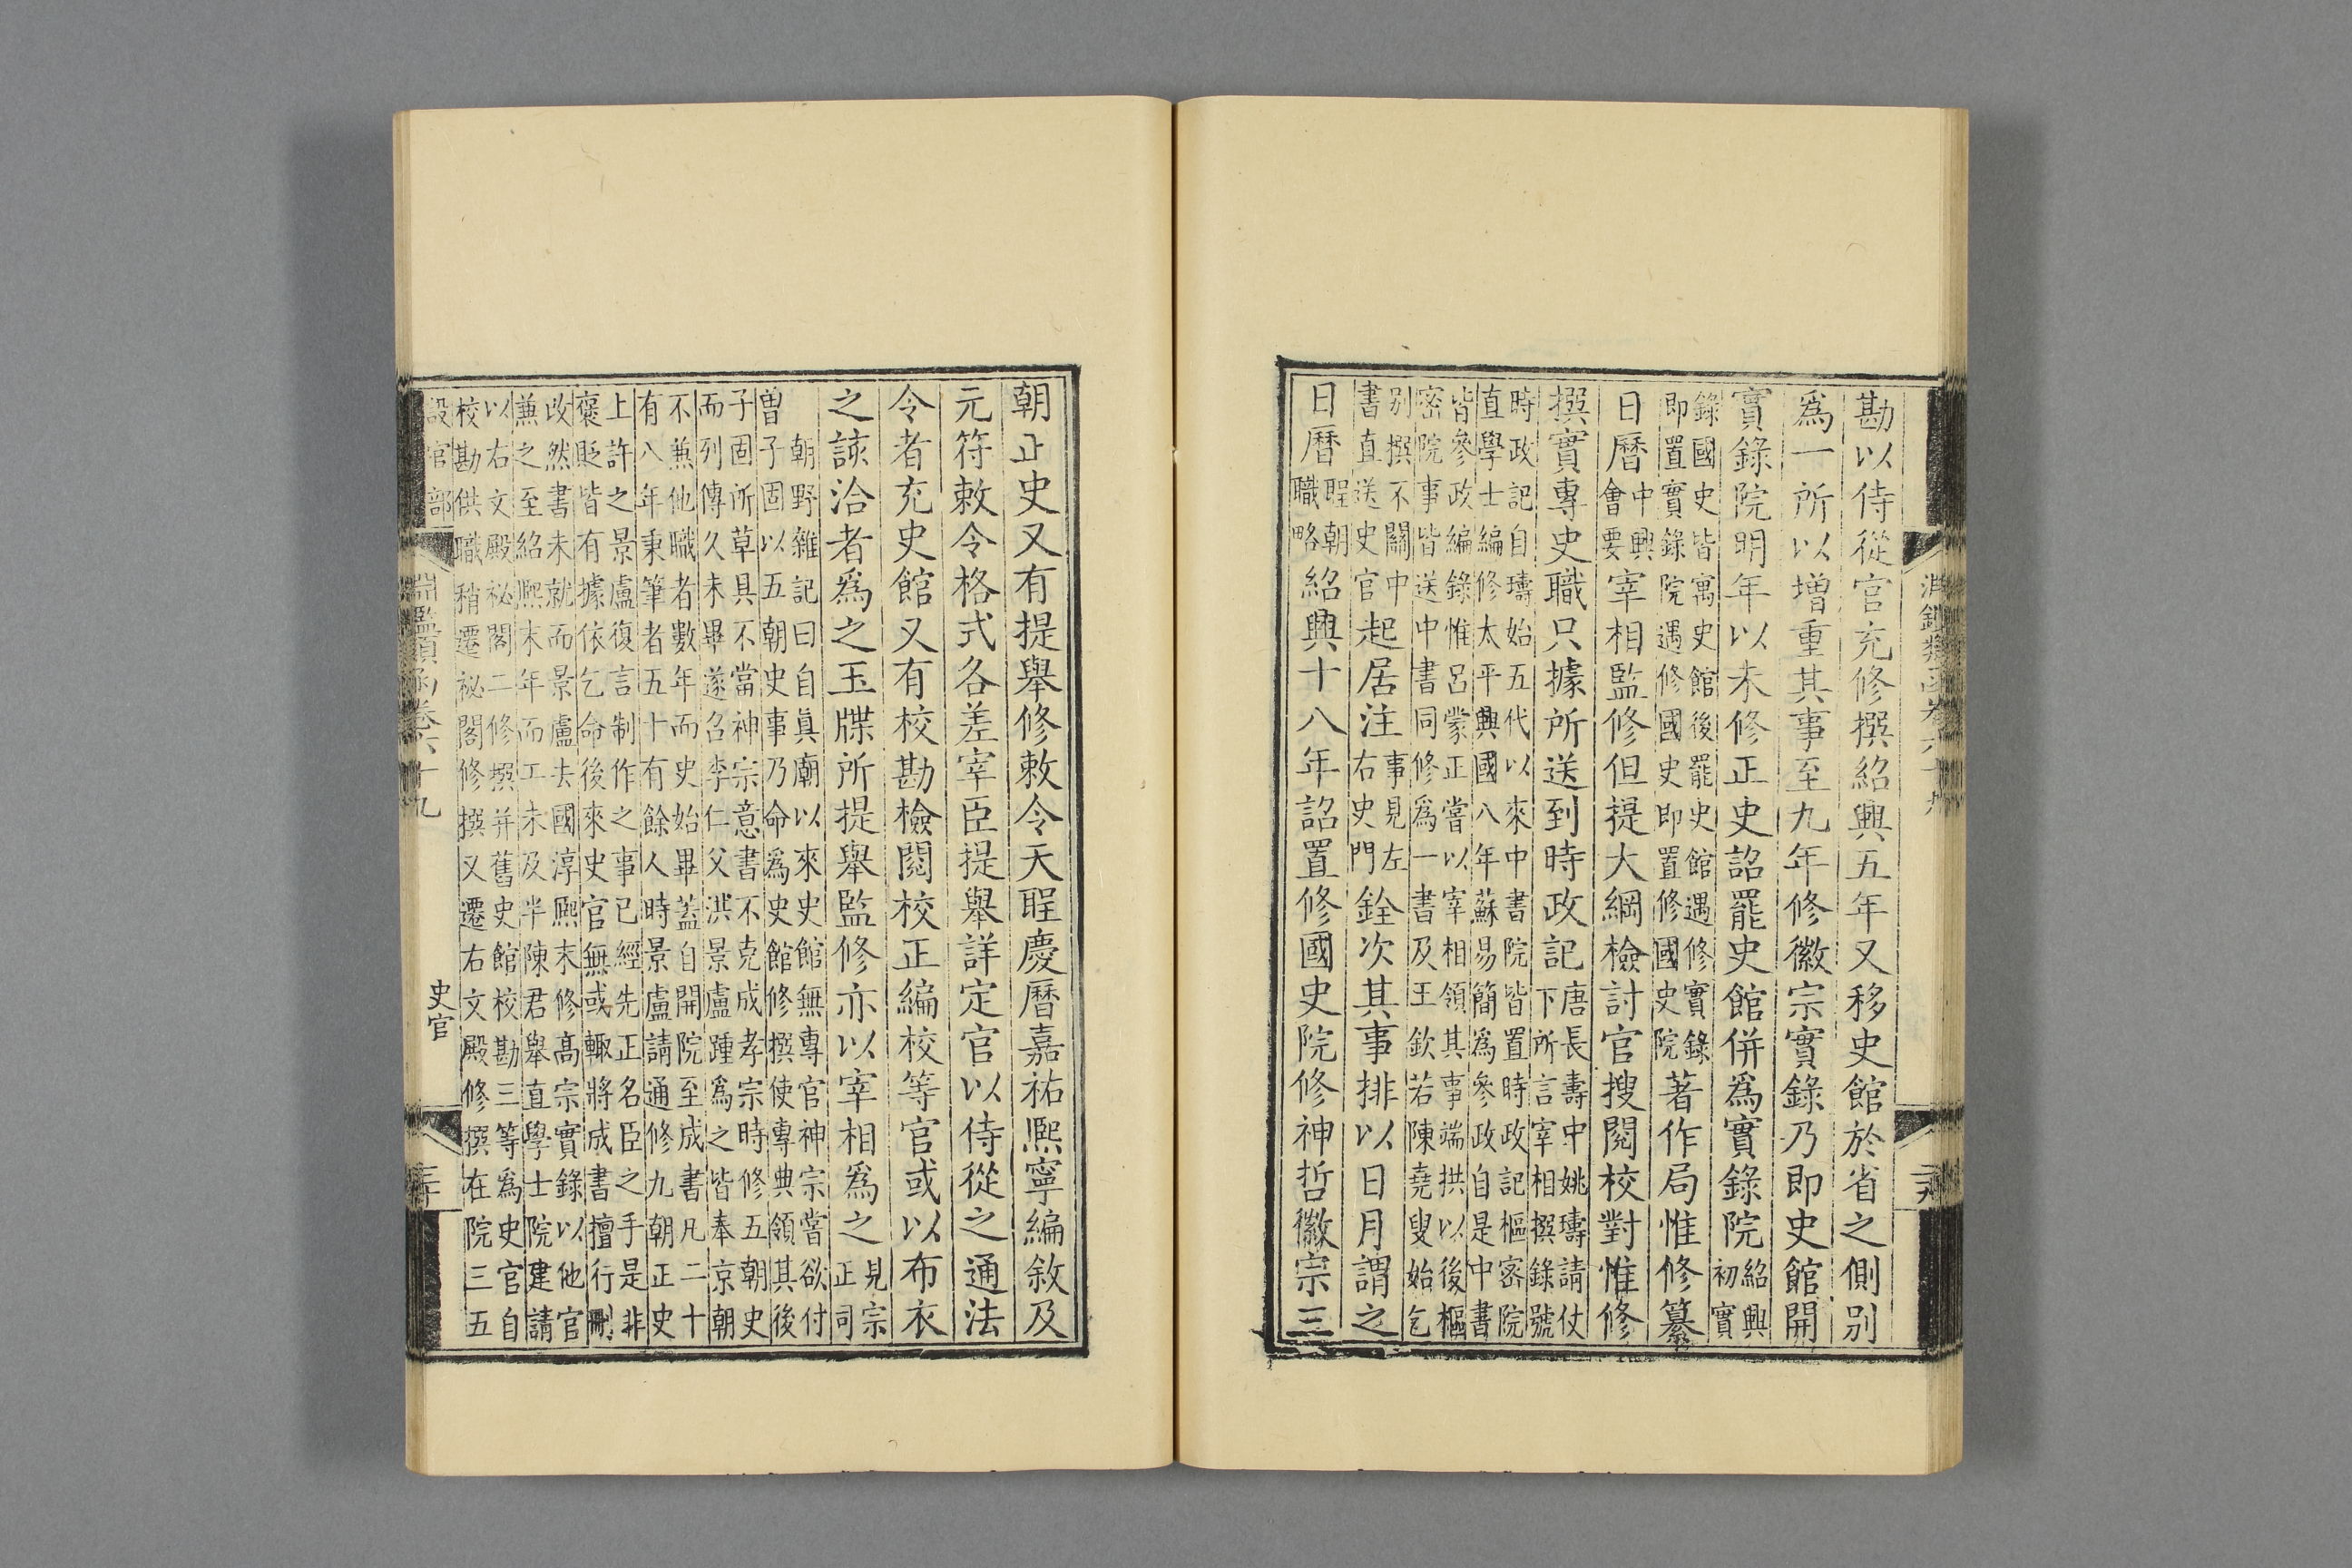 勘以侍從官充修撰紹興五年又移史館於省之側别
爲一所以增重其事至九年修徽宗實錄乃即史館開
實錄院明年以未修正史詔罷史館併爲實錄院紹興
初實
錄國史皆寓史館後罷史館遇修實錄
即置實錄院遇修國史即置修國史院著作局惟修纂
日曆中興
會要宰相監修但提大綱檢討官搜閱校對惟修
撰實專史職只據所送到時政記唐長壽中姚璹請仗
下所言宰相撰錄號
時政記自璹始五代以來中書院皆置時政記樞密院
直學士編修太平興國八年蘇易簡爲參政自是中書
皆參政編錄惟呂蒙正嘗以宰相領其事端拱以後樞
密院事皆送中書同修爲一書及王欽若陳堯叟始乞
别撰不關中
書直送史官起居注事見左
右史門銓次其事排以日月謂之
日曆聖朝
職略紹興十八年詔置修國史院修神哲徽宗三
朝正史又有提舉修敕令天聖慶曆嘉祐熙寧編敘及
元符敕令格式各差宰臣提舉詳定官以侍從之通法
令者充史館又有校勘檢閱校正編校等官或以布衣
之該洽者爲之玉牒所提舉監修亦以宰相爲之見宗
正司
朝野雜記曰自眞廟以來史館無專官神宗嘗欲付
曽子固以五朝史事乃命爲史館修撰使專典領其後
子固所草具不當神宗意書不克成孝宗時修五朝史
而列傳久未畢遂召李仁父洪景盧踵爲之皆奉京朝
不兼他職者數年而史始畢蓋自開院至成書凡二十
有八年秉筆者五十有餘人時景盧請通修九朝正史
上許之景盧復言制作之事已經先正名臣之手是非
褒貶皆有據依乞命後來史官無或輒將成書擅行刪
改然書未就而景盧去國淳熙末修高宗實錄以他官
兼之至紹熙末年而工未及半陳君舉直學士院建請
以右文殿祕閣二修撰并舊史館校勘三等爲史官自
校勘供職稍遷祕閣修撰又遷右文殿修撰在院三五
設官部
淵鑑類函卷六十九
史官
三十